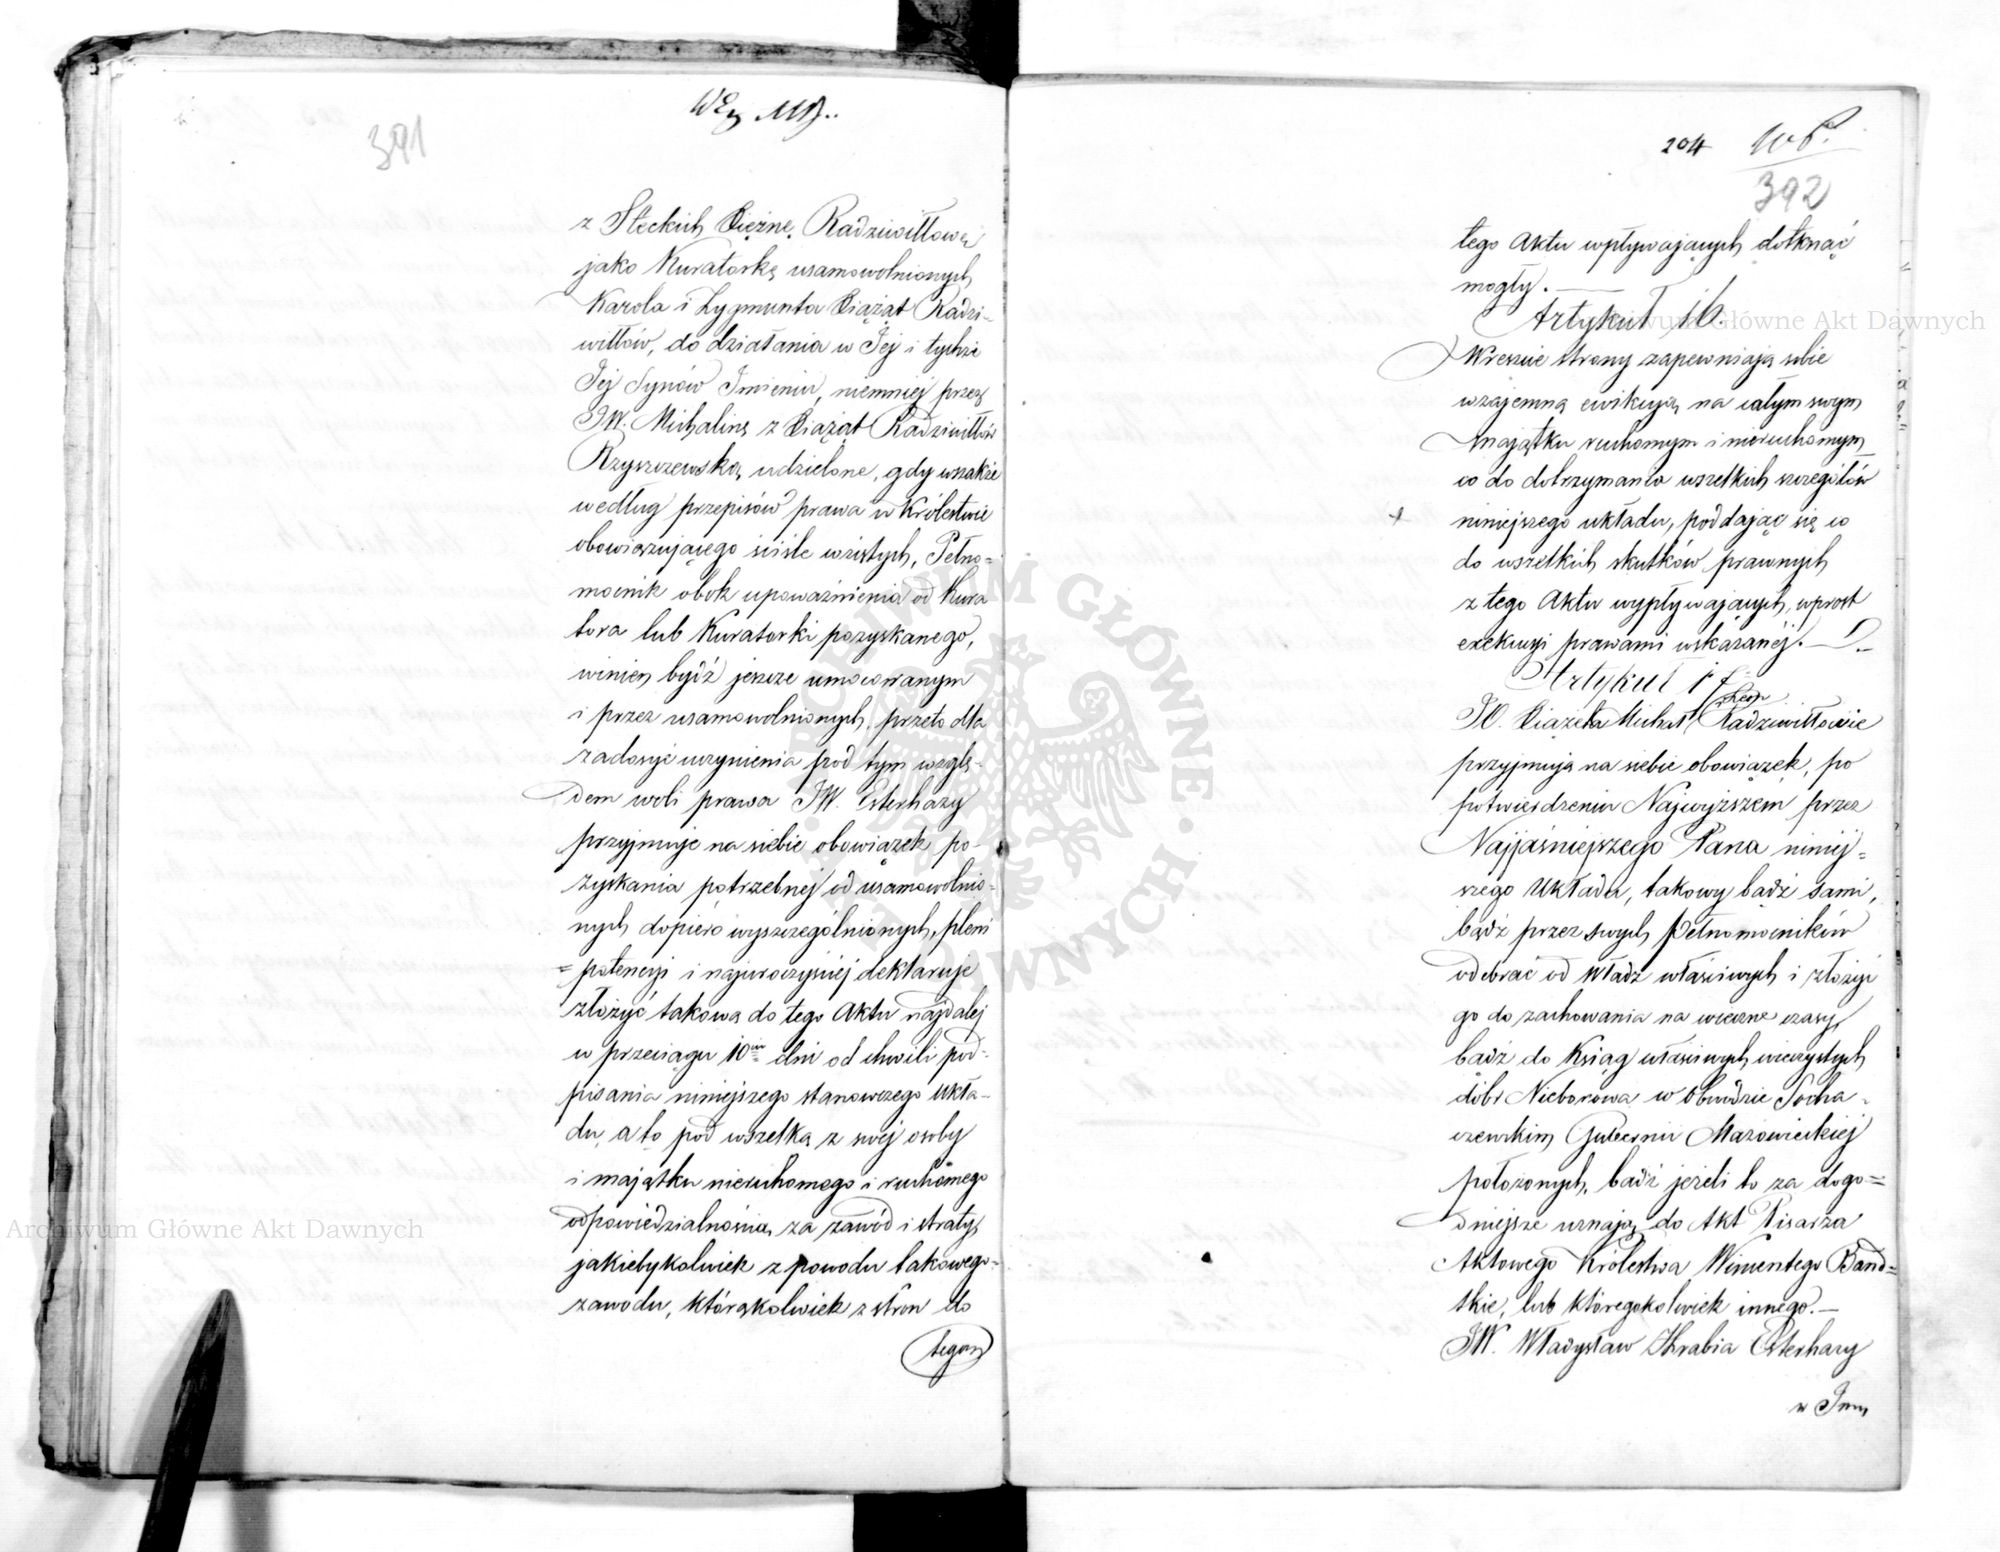 391
z Steckich Xiężnę Radziwiłłową
jako Kuratorkę usamowolnionych
Karola i Zygmunta Xiążąt Radzi-
wiłłów, do działania w Jej i tychże
Jej Synów Imieniu, niemniej przez
JW. Michalinę z Xiążąt Radziwiłłów
Rzyszczewską udzielone, gdy wszakże
według przepisów prawa w Królestwie
obowiązującego ściśle wziętych, Pełno-
mocnik obok upoważnienia od Kura
tora lub Kuratorki pozyskanego,
winien bydź jeszcze umocowanym
i przez usamowolnionych, przeto dla
zadosyć uczynienia pod tym wzglę-
dem woli prawa JW. Esterhazy
przyjmuje na siebie obowiązek po-
zyskania potrzebnej od usamowolnio-
nych dopiero wyszczególnionych, pleni
=potencyi i najuroczyściej deklaruje
złożyć takową do tego Aktu najdalej
w przeciągu 10ciu dni od chwili pod-
pisania niniejszego stanowczego Ukła-
du, a to pod wszelką z swej osoby
i majątku nieruchomego i ruchomego
odpowiedzialnością za zawód i straty,
jakiebykolwiek z powodu takowego-
zawodu, którąkolwiek z stron do
tegoż
204
392
tego Aktu wpływających dotknąć
mogły.
Artykuł 16
Wreszcie strony zapewniają sobie
wzajemną ewikcyą na całym swym
majątku ruchomym i nieruchomym
co do dotrzymania wszelkich szczegółów
niniejszego układu, poddając się co
do wszelkich skutków prawnych
z tego Aktu wypływających, wprost
exekucyi prawami wskazanéj.
Artykuł 17
JO. Xiążęta Michał, Leon Radziwiłłowie
przyjmują na siebie obowiązek, po
potwierdzeniu Najwyższem przez
Najjaśniejszego Pana niniej=
szego Układu, takowy bądź sami,
bądź przez swych Pełnomocników
odebrać od Władz właściwych i złożyć
go do zachowania na wieczne czasy,
bądź do Ksiąg właściwych wieczystych
dóbr Nieborowa w Obwodzie Socha-
czewskim Gubernii Mazowieckiej
położonych, bądź jeżeli to za dogo=
dniejsze uznają, do Akt Pisarza
Aktowego Królestwa Wincentego Band=
tkie, lub któregokolwiek innego.—
JW. Władysław Hrabia Esterhazy
w Imie
Archiwum Główne Akt Dawnych
Archiwum Główne Akt Dawnych
ARCHIWUM GŁÓWNE AKT DAWNYCH